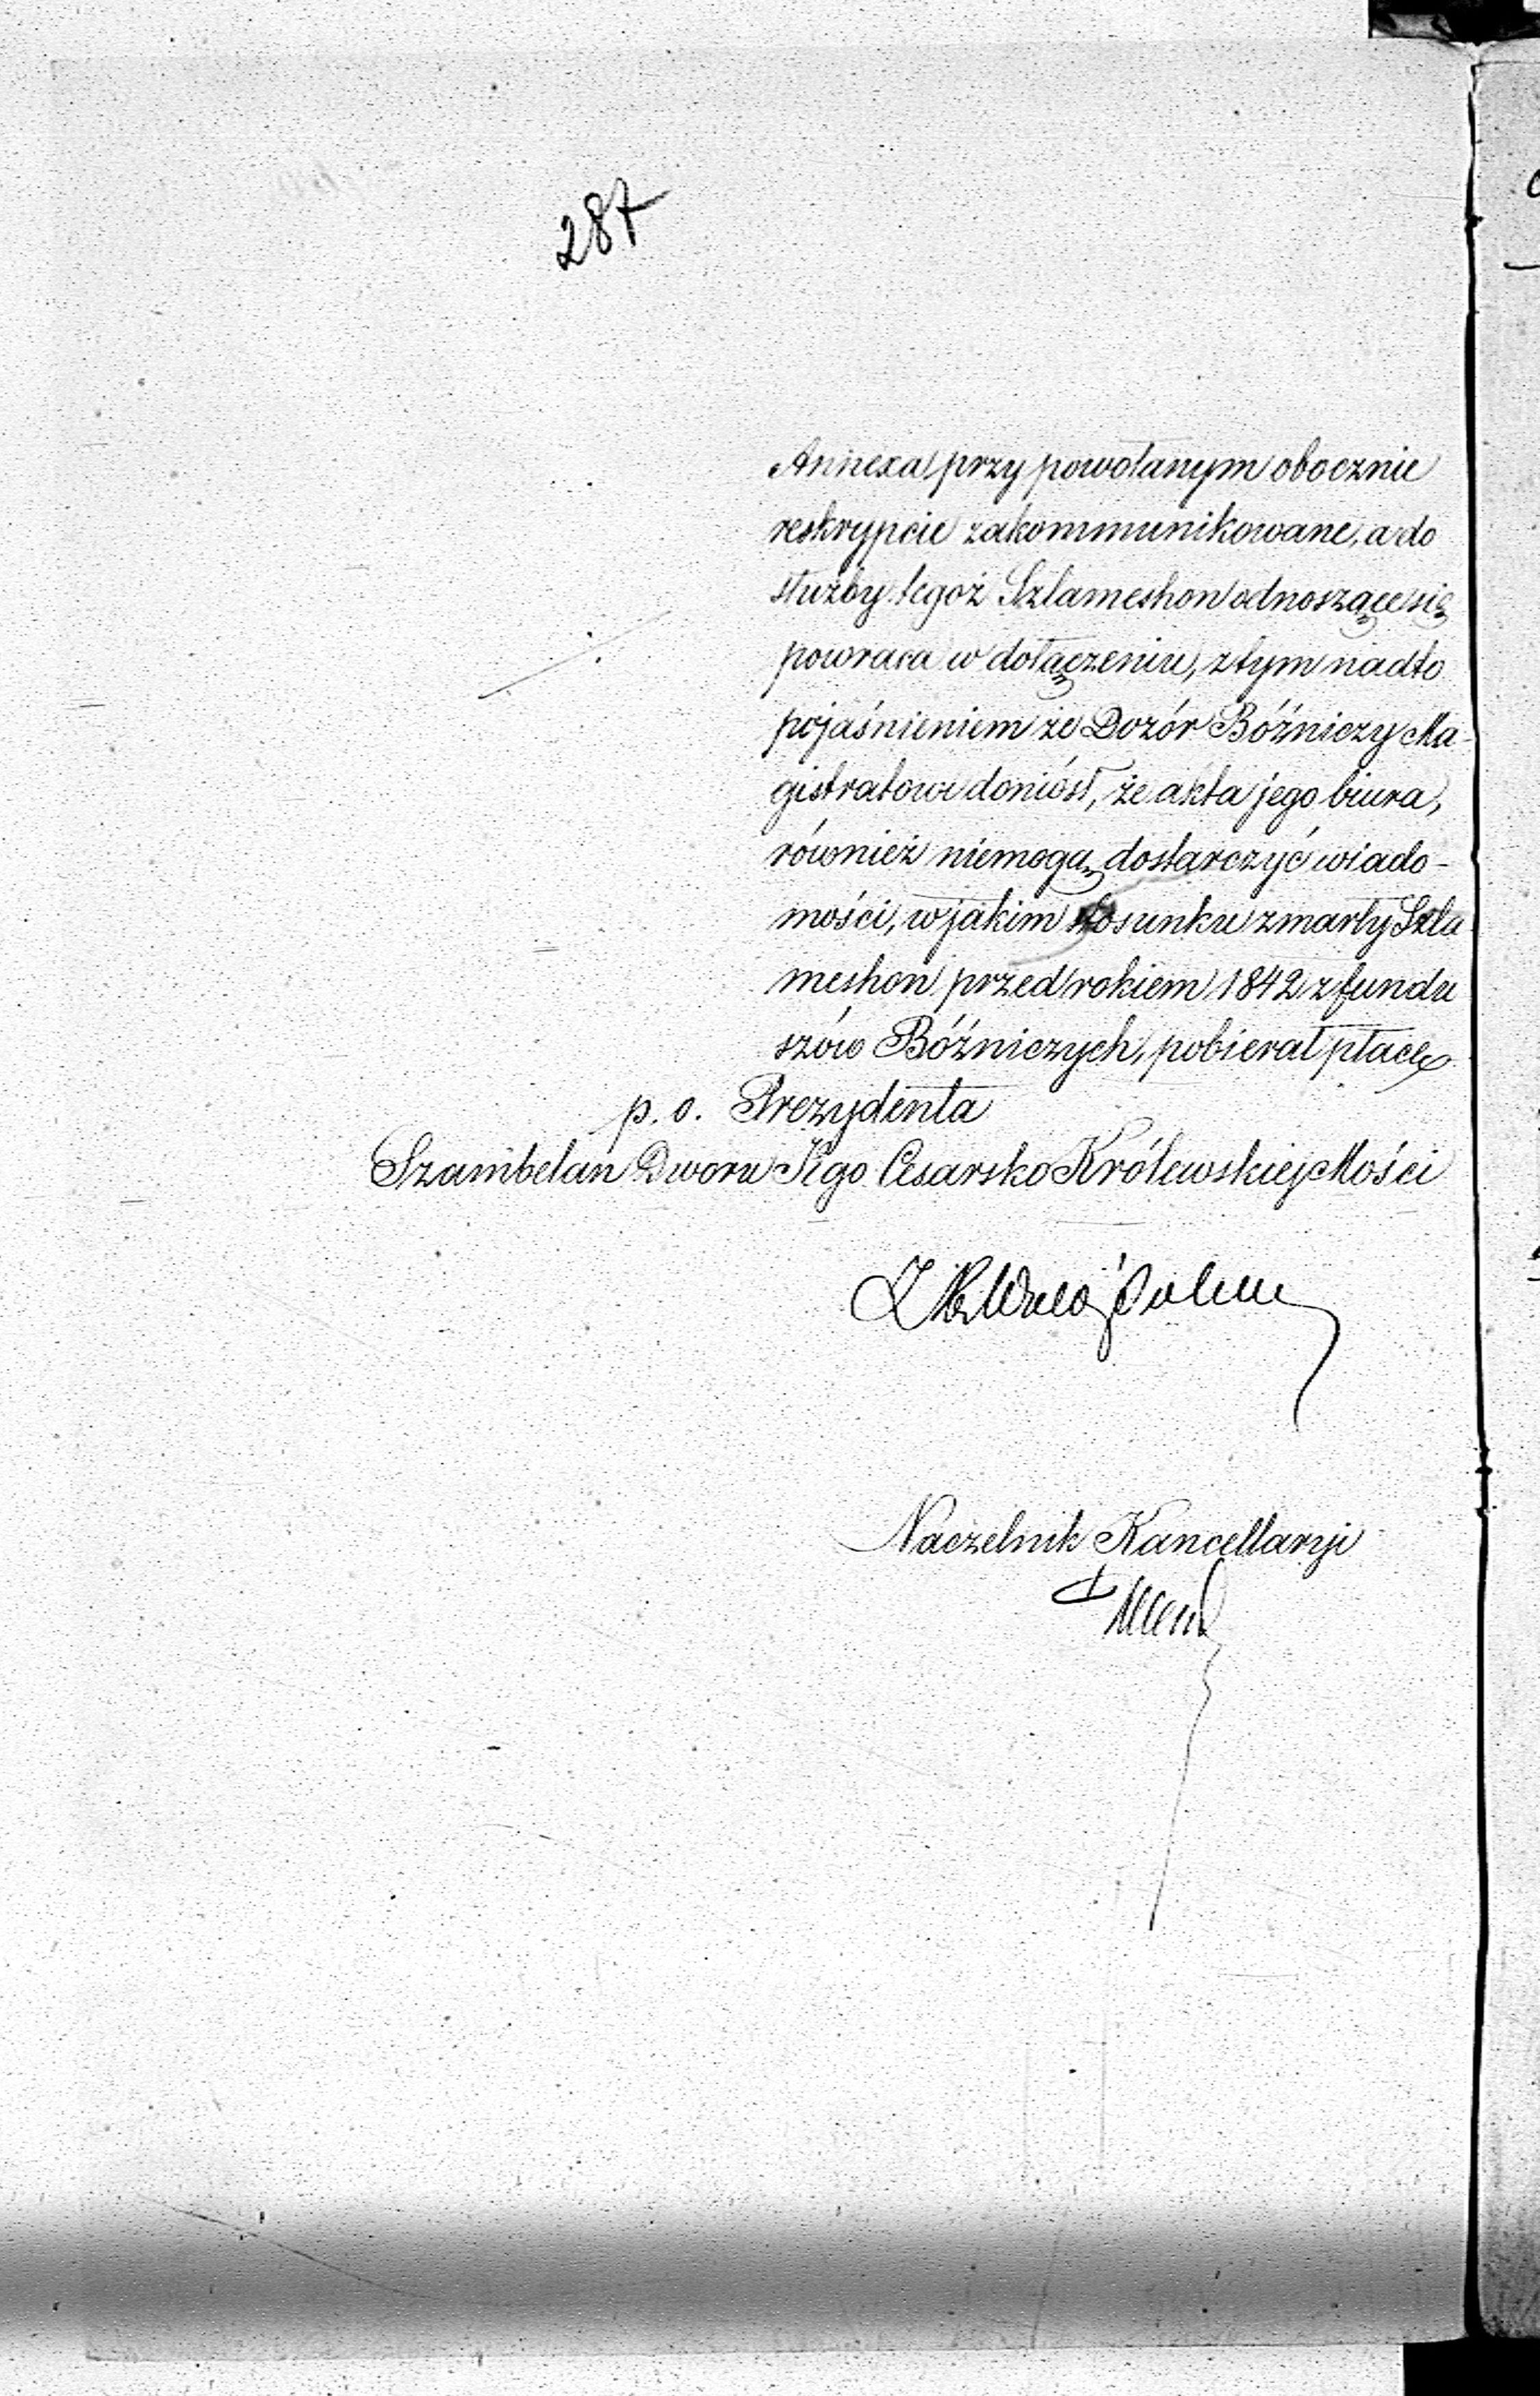 287
Annexa przy powołanym obocznie
reskrypcie zakommunikowane, a do
służby tegoż Szlameshon odnoszące się
powraca w dołączeniu, z tym nadto
pojaśnieniem że Dozór Bóźniczy Ma-
gistratowi doniósł, że akta jego biura,
również niemogą dostarczyć wiado-
mości, w jakim stosunku zmarły Szla
meshon przed rokiem 1842 z fundu
szów Bóźniczych, pobierał płacę
p. o. Prezydenta
Szambelan Dworu Jego Cesarsko Królewskiej Mości
Naczelnik Kancellaryi